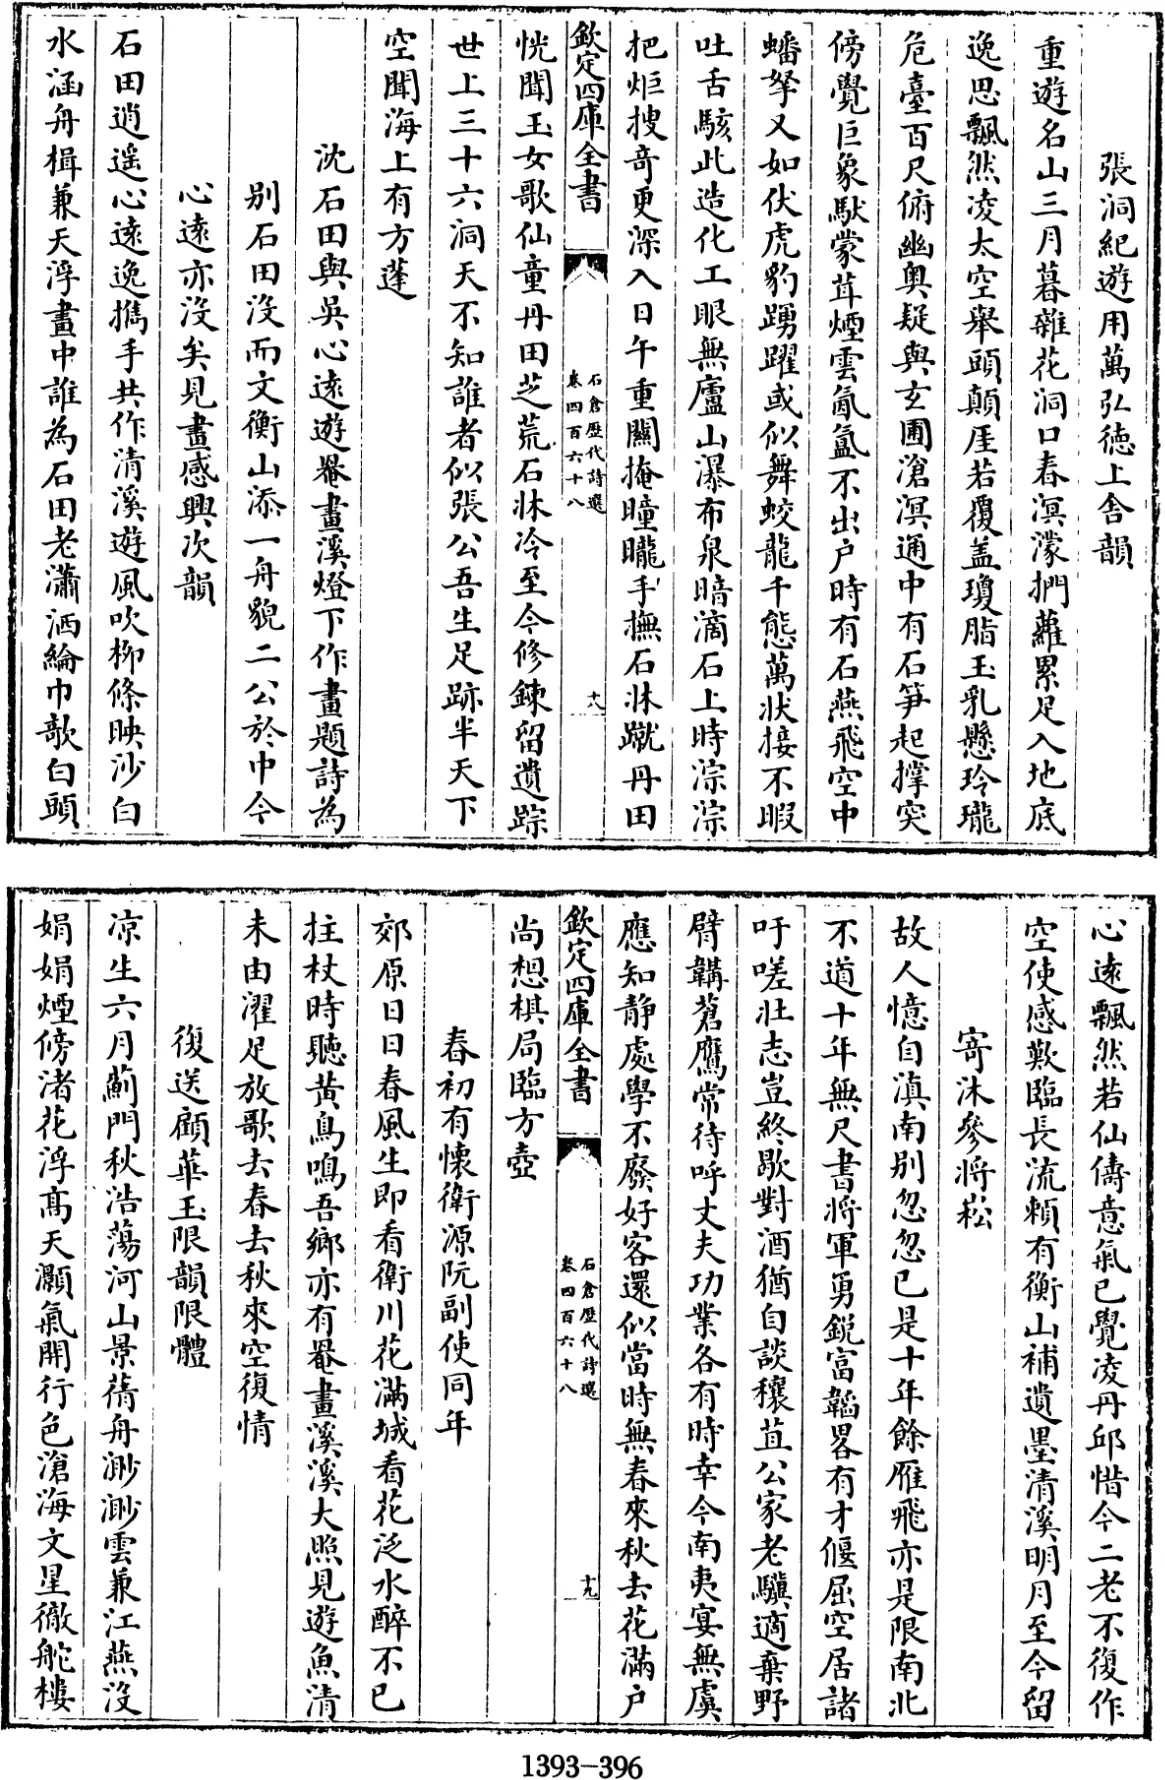 張洞紀遊用萬弘德上舍韻
重遊名山三月暮雜花洞口春溟濛捫蘿累足入地底
逸思飄然凌太空舉頭顛厓若覆盖瓊脂玉乳懸玲瓏
危臺百尺俯幽奥疑與玄圃滄溟通中有石笋起撑突
傍覺巨象馱蒙茸煙雲氤氲不出户時有石燕飛空中
蟠拏又如伏虎豹踴躍或似舞蛟龍千態萬狀接不暇
吐舌駭此造化工眼無廬山瀑布泉暗滴石上時淙淙
把炬搜奇更深入日午重關掩曈曨手撫石牀蹴丹田
欽定四庫全書
石倉歷代詩選
卷四百六十八
十八
恍聞玉女歌仙童丹田芝荒石牀冷至今修鍊留遺踪
世上三十六洞天不知誰者似張公吾生足跡半天下
空聞海上有方蓬
沈石田與吳心遠遊罨畫溪燈下作畫題詩為
别石田没而文衡山添一舟貌二公於中今
心遠亦没矣見畫感興次韻
石田逍遥心遠逸携手共作清溪遊風吹柳條映沙白
水涵舟楫兼天浮畫中誰為石田老瀟洒綸巾歌白頭
心遠飄然若仙儔意氣已覺凌丹邱惜今二老不復作
空使感歎臨長流頼有衡山補遺墨清溪明月至今留
寄沐參將崧
故人憶自滇南别忽忽已是十年餘雁飛亦是限南北
不道十年無尺書將軍勇鋭富韜畧有才偃屈空居諸
吁嗟壯志豈終歇對酒猶自談穰苴公家老驥適棄野
臂韝蒼鷹常待呼丈夫功業各有時幸今南夷宴無虞
應知静處學不廢好客還似當時無春來秋去花滿户
欽定四庫全書
石倉歷代詩選
卷四百六十八
十九
尚想棋局臨方壺
春初有懷衛源阮副使同年
郊原日日春風生即看衛川花滿城看花泛水醉不已
拄杖時聽黄鳥鳴吾鄉亦有罨畫溪溪大照見遊魚清
未由濯足放歌去春去秋來空復情
復送顧華玉限韻限體
凉生六月薊門秋浩蕩河山景蒨舟渺渺雲兼江燕没
娟娟煙傍渚花浮髙天灝氣開行色滄海文星徹舵樓
1393-396